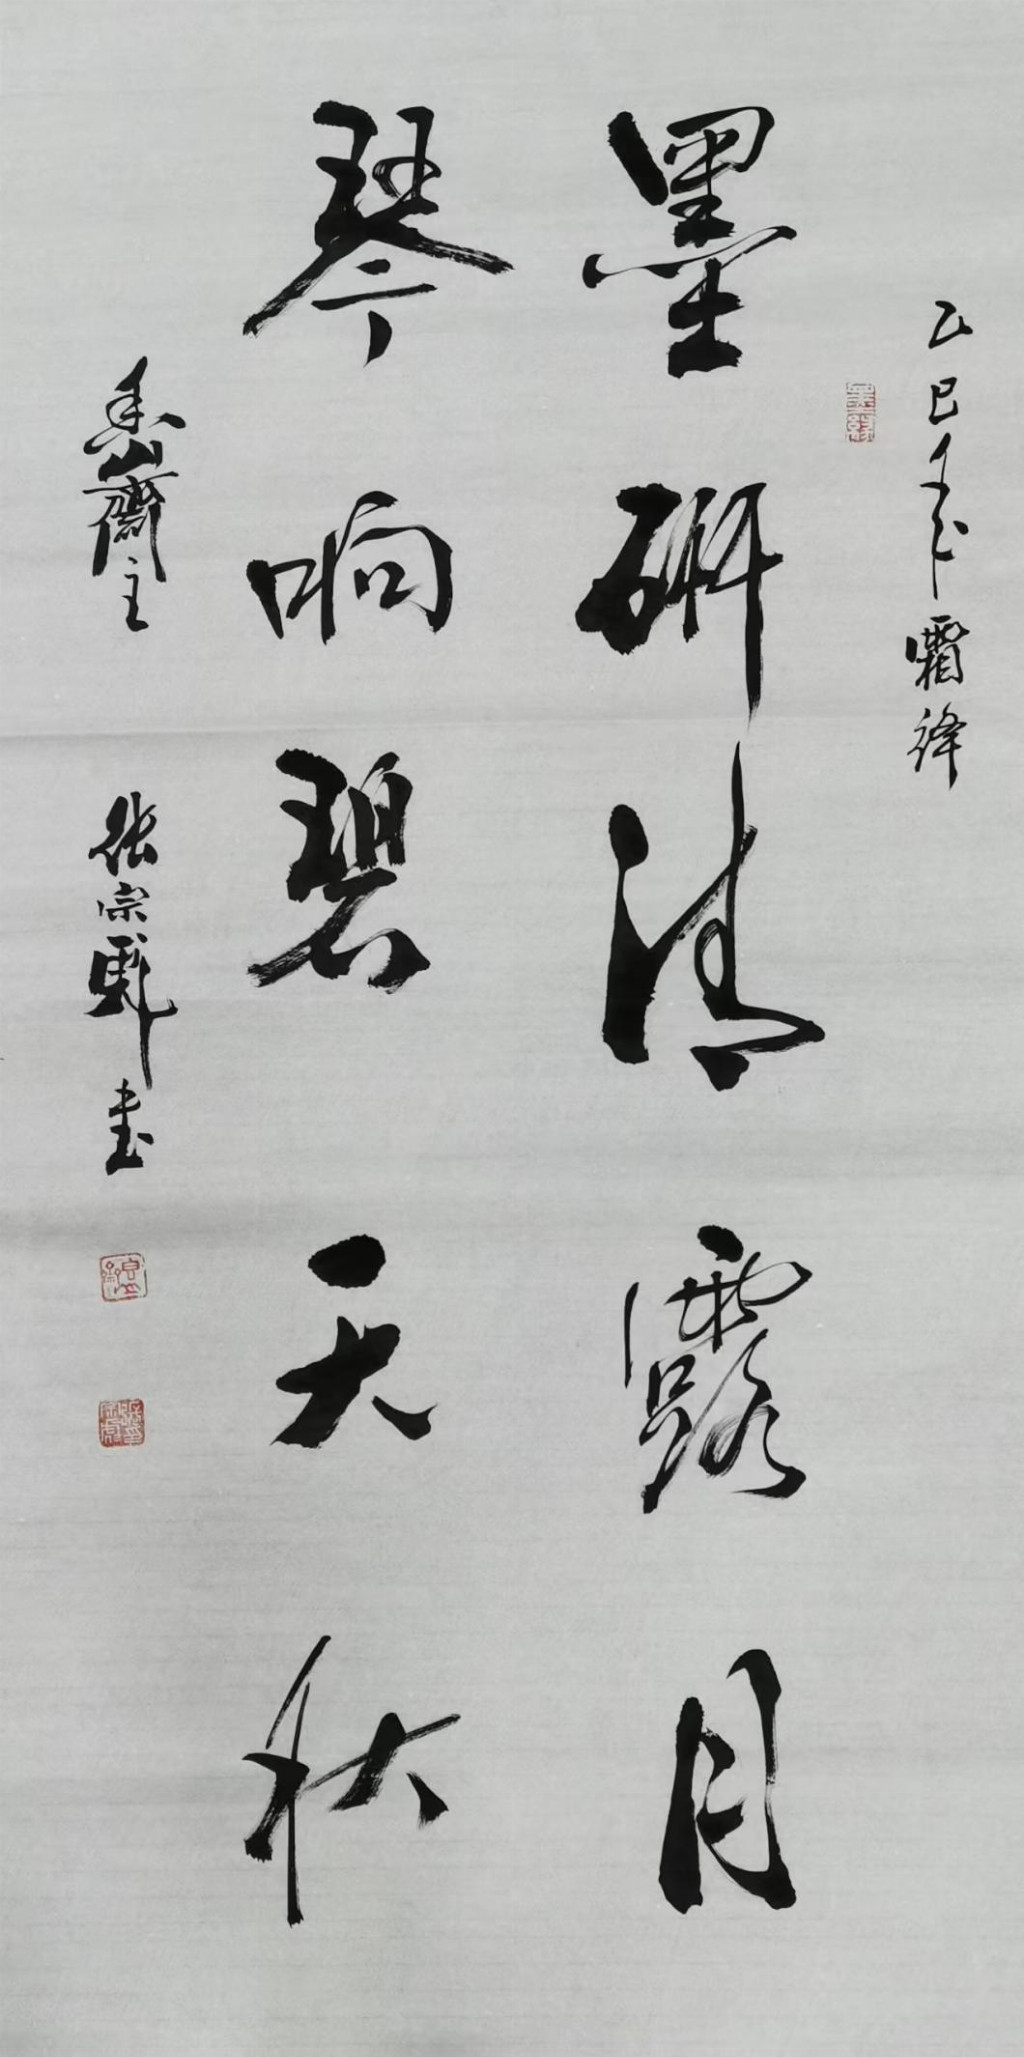 乙巳年霜降
墨研清露月
琴响碧天秋
山齋主 张宗 书